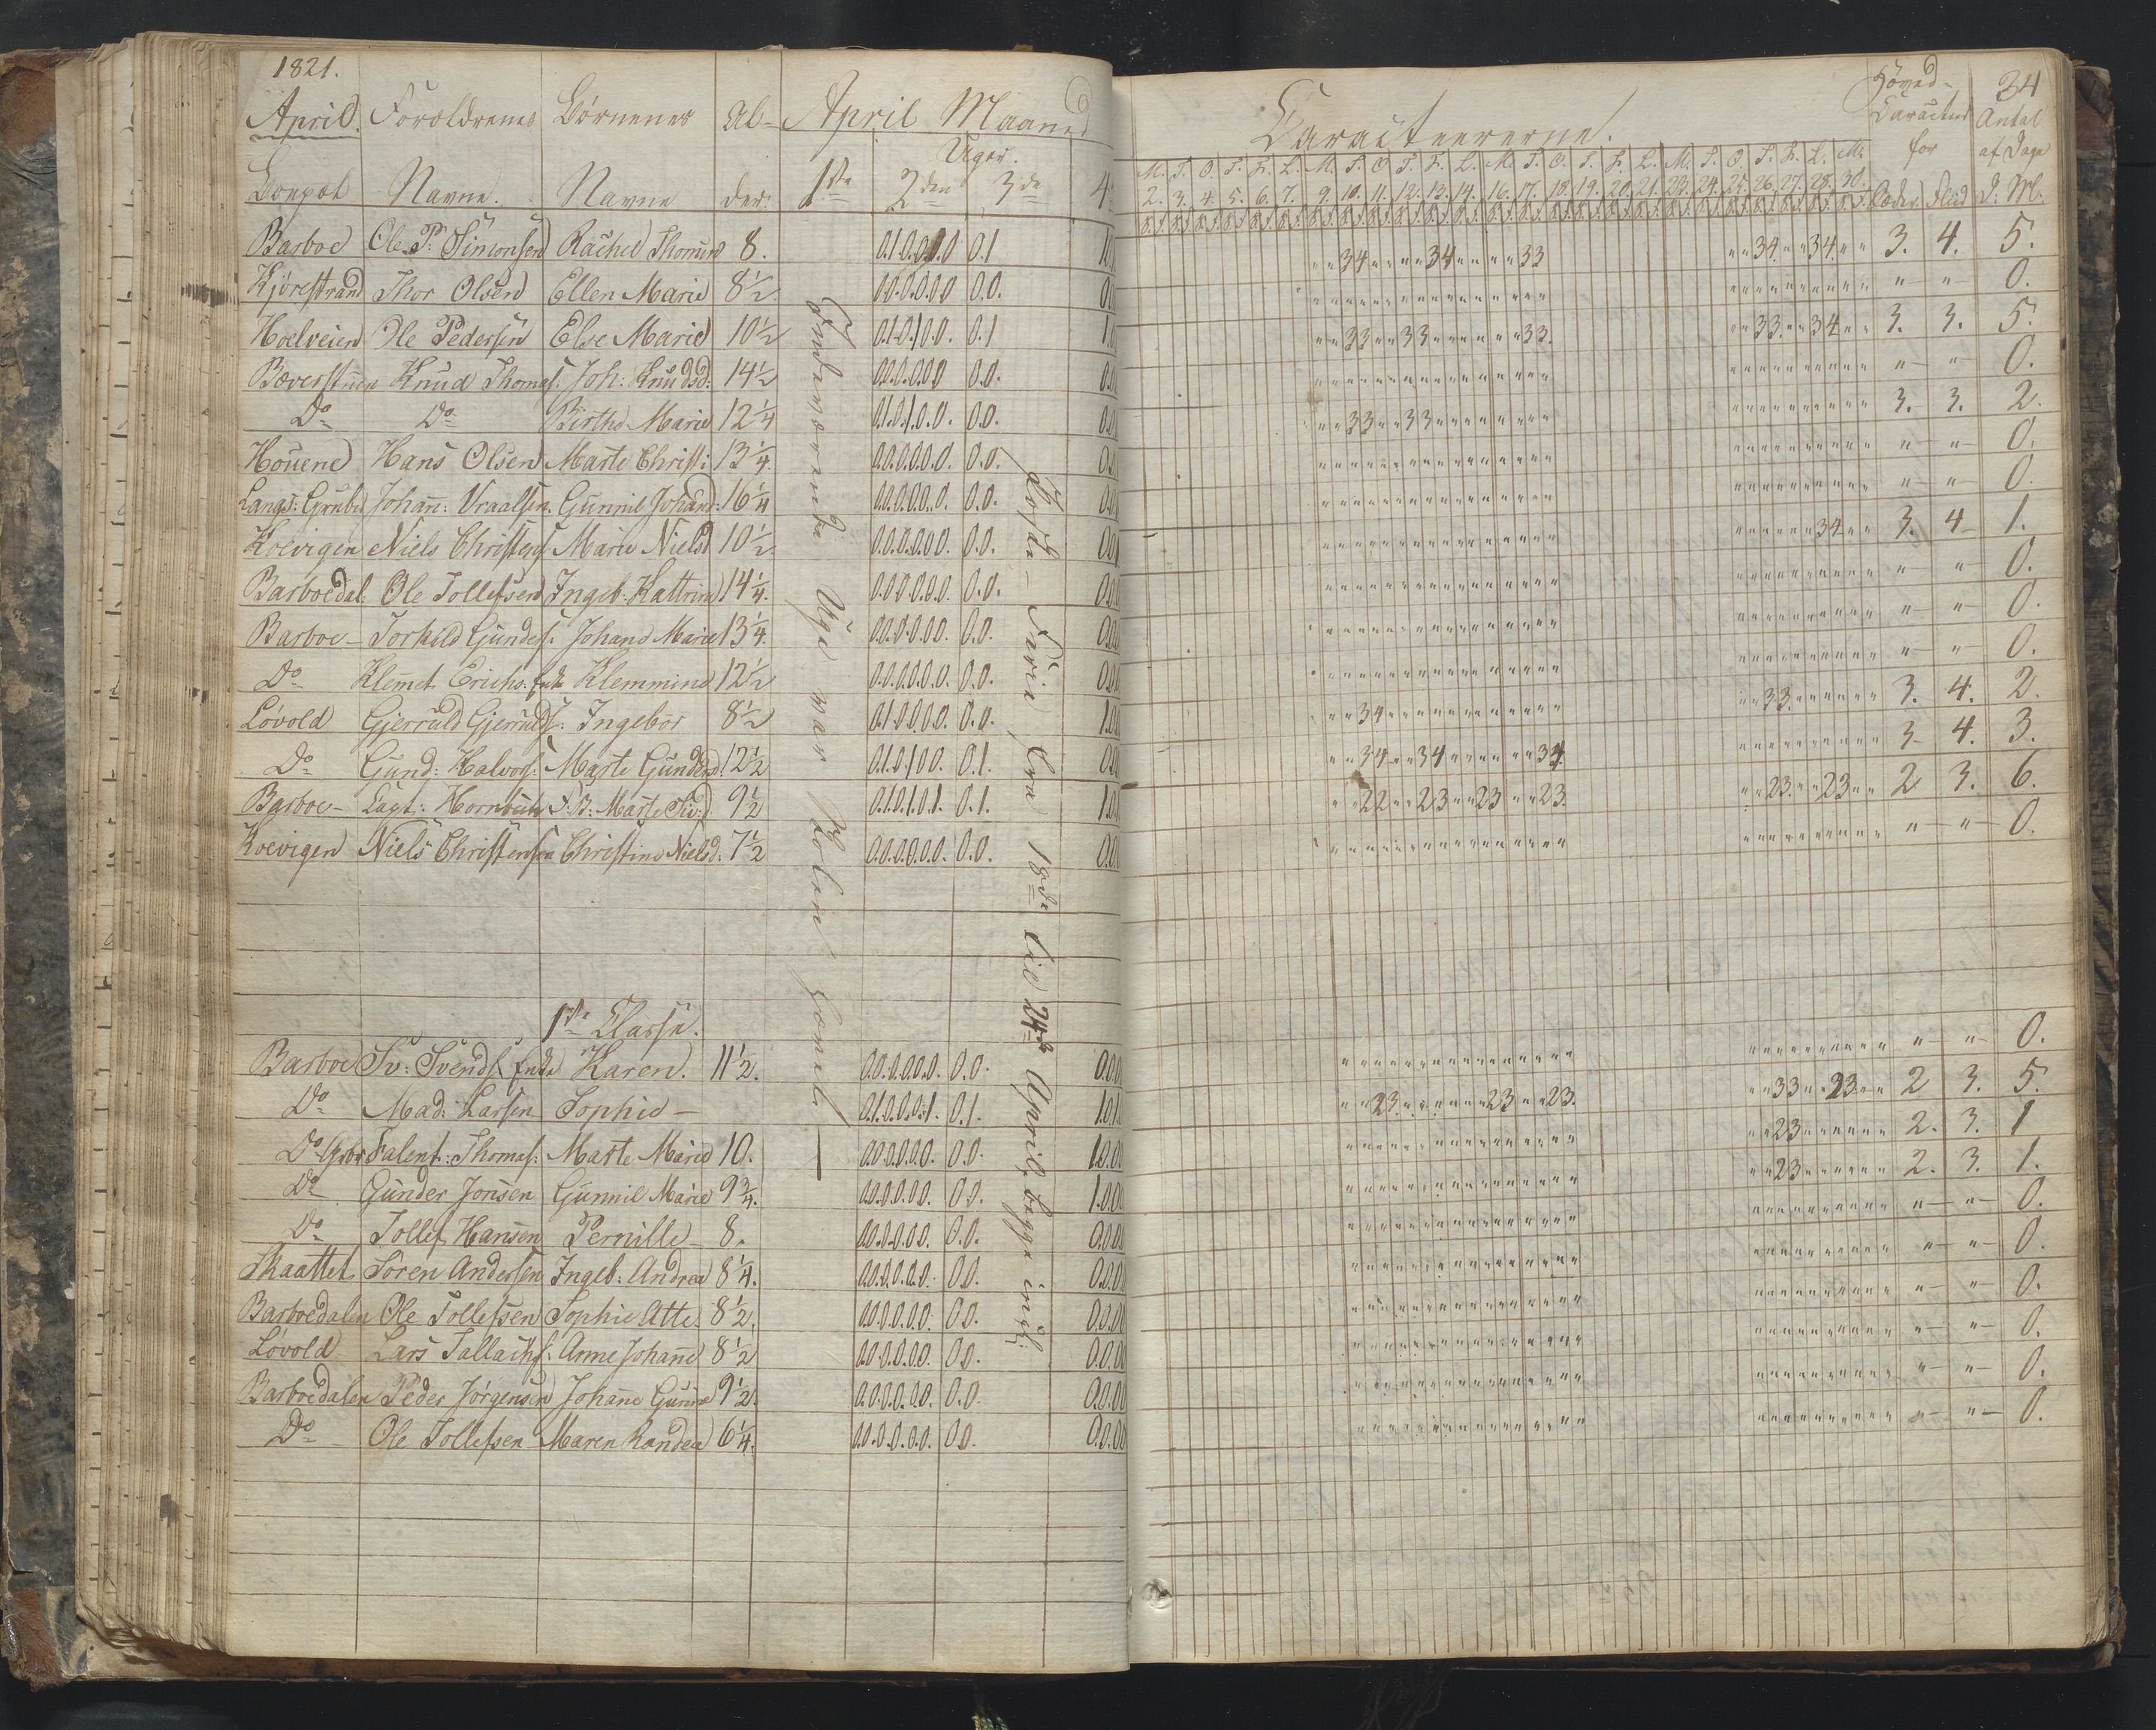 1821.
April. Foroldrenes Børnenes Al- April Maaned
Uger.
Boepæl Navne. Navne der. 1ste 2den 3de 4
Barboe Ole P. Simonsen Rachel 8. 0.1.0.0.0.0 0.1
Kjørestrand Thor Olsen Ellen Marie 8 1/2 0.0.0.0.0.0 0.0.
Hoelveien Ole Pedersen Else Marie 10 1/2 0.1.0.1.0.0. 0.1
Knud Thomas. Joh: Knudsd: 14 1/2 0.0.0.0.0.0 0.0.
Do Do Birthe Marie 12 1/4 0.1.0.1.0.0. 0.0.
Houene Hans Olsen Marte Christi: 13 1/4. 0.0.0.0.0.0. 0.0.
Langs: Johan: Vraalsen. Gunnil Johand: 16 1/4 0.0.0.0.0.0. 0.0.
Koevigen Niels Christens. Marie Nielsd 10 1/2. 0.0.0.0.0.0. 0.0.
Barboedal: Ole Tollefsen Ingeb. Kattrine 14 1/4. 0.0.0.0.0.0. 0.0.
Barboe - Torkild Gundes. Johane Marie 13 1/4. 0.0.0.0.0.0. 0.0.
Do Klemet Erichs. Enke Klemmine 12 1/2 0.0.0.0.0.0. 0.0.
Løvold Gjeruld Gjerulds. Ingebor 8 1/2 0.1.0.0.0.0. 0.0.
Do Gund: Halvors: Marte Gunders 12 1/2 0.1.0.1.0.0. 0.1.
Barboe - Marte 9 1/2 0.1.0.1.0.1. 0.1.
Koevigen Niels Christensen Christine Nielsd. 7 1/2 0.0.0.0.0.0. 0.0.
Indeværende Uge var Skolen
Paaske-Ferie fra 18de til 24de April, begge incl:
1ste Classe.
Barboe Sv: Svends. Enke Karen. 11 1/2. 0.0.0.0.0.0. 0.0.
Do Mad: Larsen Sophie - 0.1.0.0.0.1. 0.1.
Do Falent: Thomas: Marte Marie 10. 0.0.0.0.0.0. 0.0.
Do Gunder Jonsen Gunnil Marie 9 3/4. 0.0.0.0.0.0. 0.0.
Do Tollef Hansen Pernille - 8. 0.0.0.0.0.0. 0.0.
Skaattet Soren Andersen Ingeb: Andrea 8 1/4. 0.0.0.0.0.0. 0.0.
Barboedalen Ole Tollefsen Sophie Atte. 8 1/2. 0.0.0.0.0.0. 0.0.
Løvold Lars Tallachs. Anne Johane 8 1/2 0.0.0.0.0.0. 0.0.
Barboedalen Peder Jørgensen Johane Gurine 9 1/2. 0.0.0.0.0.0. 0.0.
Do Ole Tollefsen Maren Randea 6 1/4. 0.0.0.0.0.0. 0.0.
34
Caracteererne. Hoved- Caracter for Antal af Dage
M. T. O. T. F. L. M. T. O. T. F. L. M. T. O. T. F. L. M. T. O. T. F. L. M.
2. 3. 4. 5. 6. 7. 9. 10. 11. 12. 13. 14. 16. 17. 18. 19. 20. 21. 23. 24. 25. 26. 27. 28. 30. Sæder. Flid D: M:
34 34 33 34 34 3. 4. 5.
" " 0.
33 33 33. 33 34 3. 3. 5.
" " 0.
33 33 3. 3. 2.
" " 0.
" " 0.
34 3. 4 1.
" " 0.
" " 0.
" " 0.
34 33 3. 4. 2.
34 34 34. 3 4. 3.
22 23 23 23. 23 23 2 3. 6.
" " 0.
" " 0.
23 23 23. 33 23 2 3. 5.
23 2. 3. 1
23 2. 3. 1.
" " 0.
" " 0.
" " 0.
" " 0.
" " 0.
" " 0.